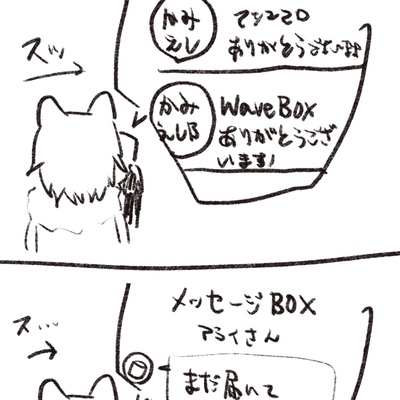 かみ
えし
テンユエロ
ありがとうございます
スッ
かみ
えしB
WaveBOX
ありがとうござ
います!
メッセージBOX
アライさん
ス…
まだ届いて